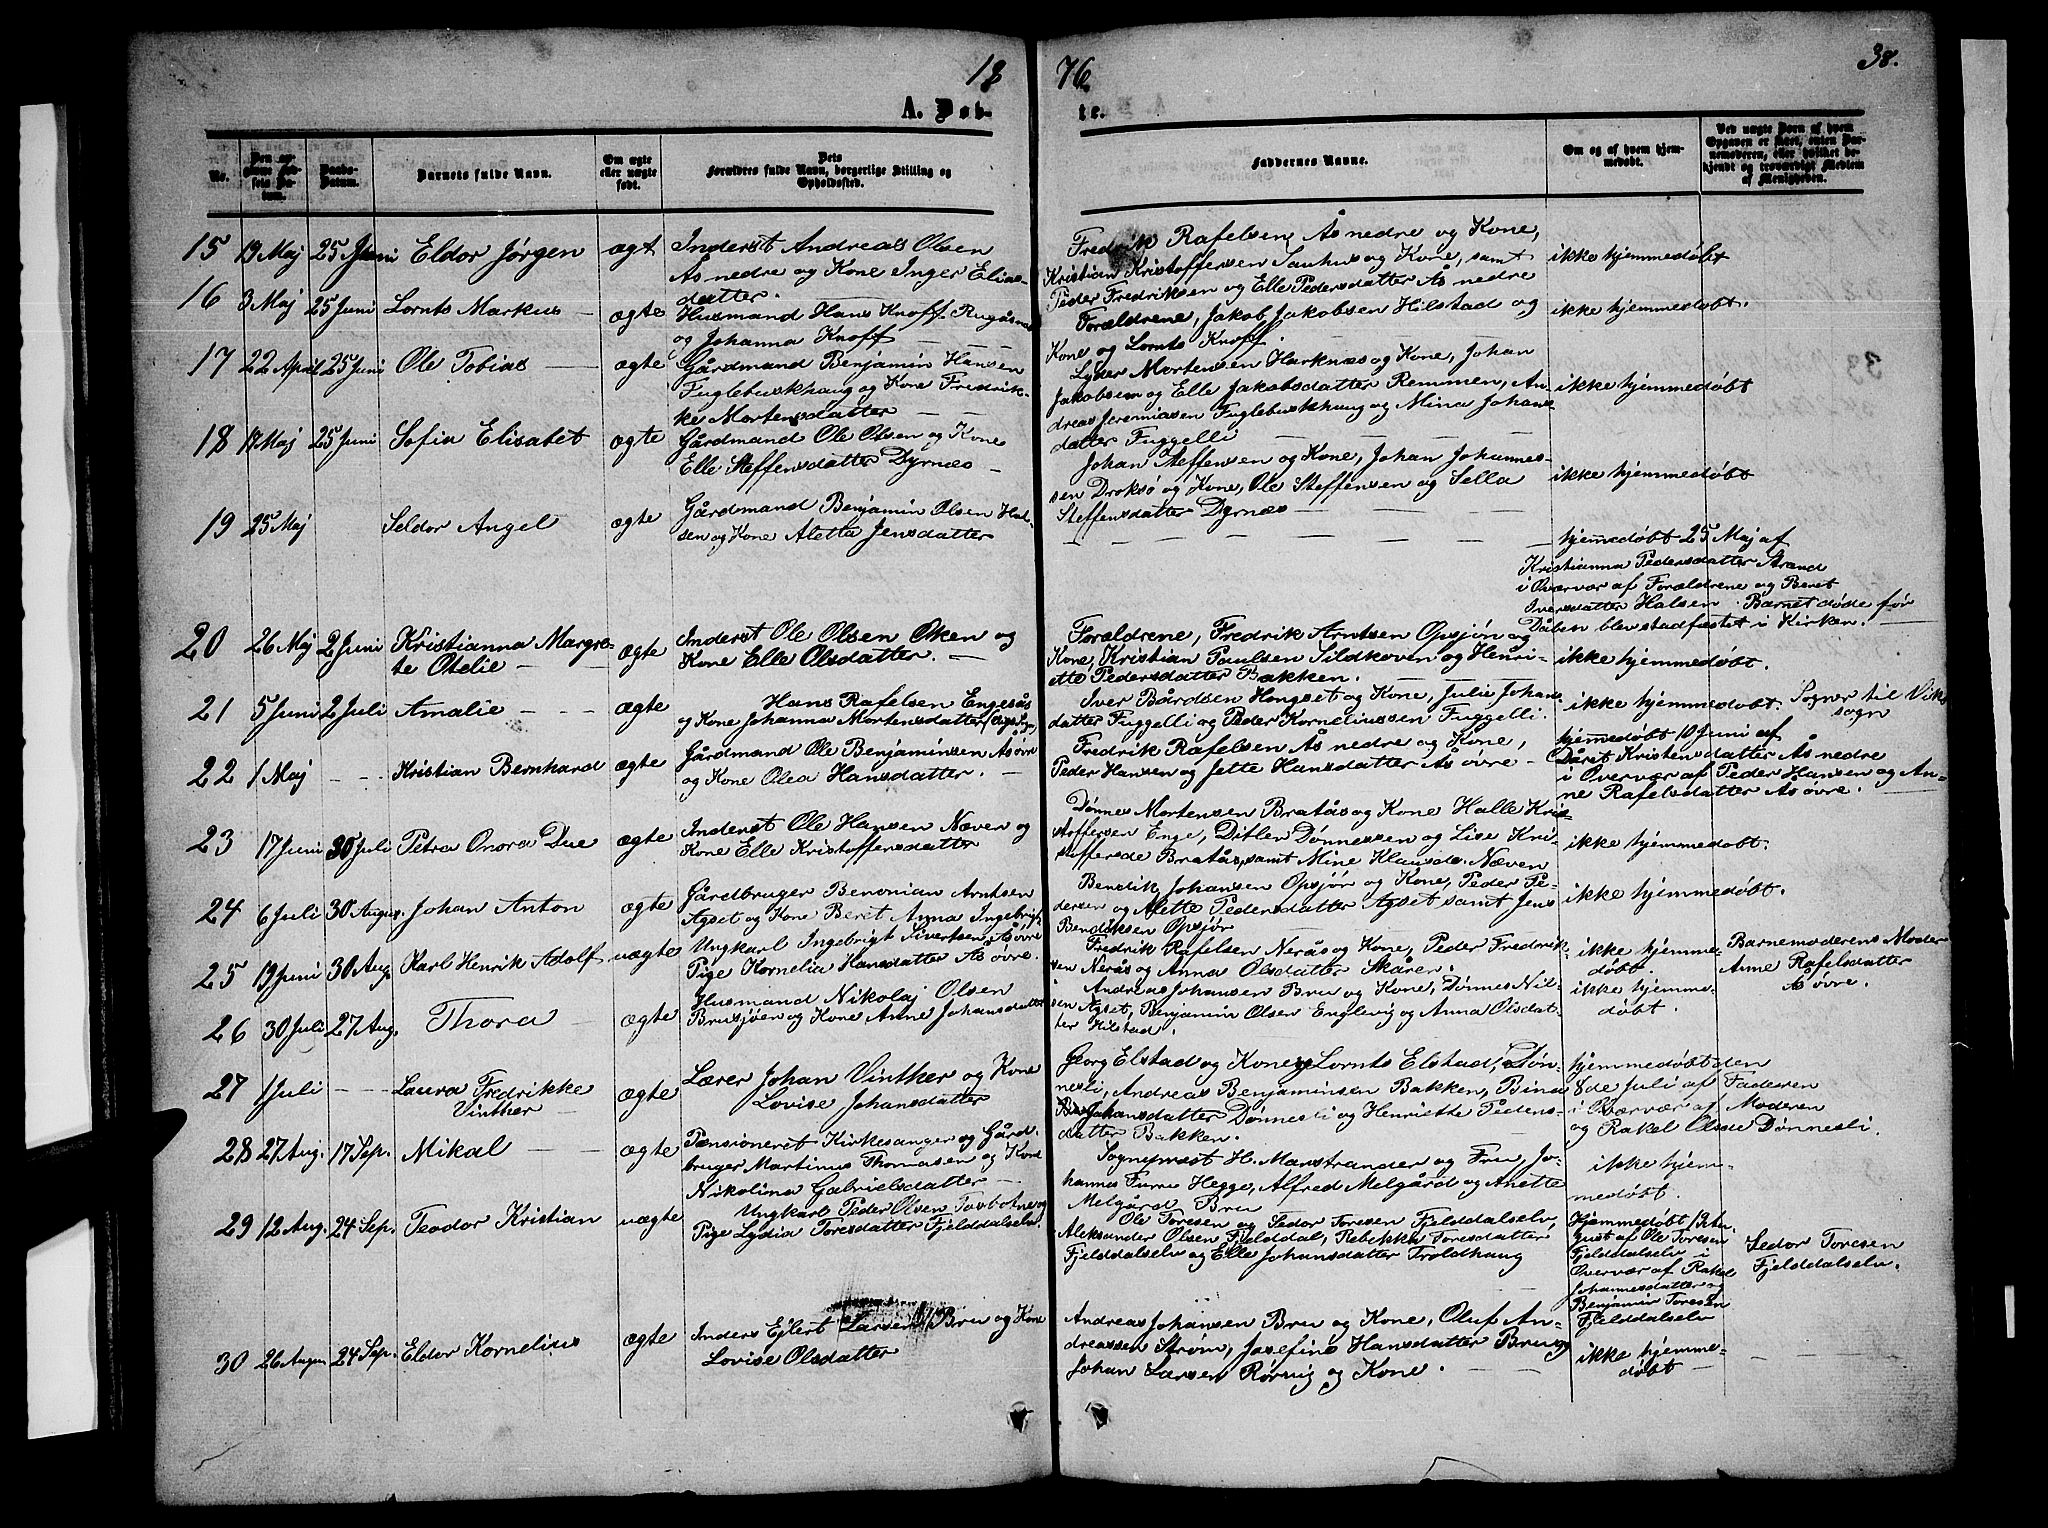 18 76 38.
A. Døb- te.
No.
Den an-
givne Fød-
sels Da-
tum.
Daabs-
Datum.
Barnets fulde Navn.
Om ægte
eller uægte
født.
Dets
Forældres fulde Navn, borgerlige Stilling og
Opholdssted.
Faddernes Navne.
Om og af hvem hjem-
medøbt.
Ved uægte Børn af hvem
Opgaven er skeet, enten Bar-
nemoderen, eller hvilket be-
kjendt og troværdigt Medlem
af Menigheden.
15 19 Maj 25 Juni Eldor Jørgen ægt
Inderst Andreas Olsen
Ås nedre og Kone Inger Elias-
datter.
Fredrik Rafelsen Ås nedre og Kone,
Kristian Kristoffersen Sauhus og Kone, samt
Peder Fredriksen og Elle Pedersdatter Ås nedre
ikke hjemmedøbt
16 3 Maj 25 Juni Lornts Markus ægte
Husmand Hans Knoff Rugåsnes
og Johanna Knoff
Forældrene, Jakob Jakobsen Hilstad og
Kone og Lornts Knoff.
ikke hjemmedøbt.
17 22 April 25 Juni Ole Tobias ægte
Gårdmand Benjamin Hansen
Fuglebuskhaug og Kone Fredrik-
ke Mortensdatter
Lyder Mortensen Harknæs og Kone, Johan
Jakobsen og Elle Jakobsdatter Remmen, An-
dreas Jeremiasen Fuglebuskhaug og Mina Johans-
datter Fuggelli
ikke hjemmedøbt
18 17 Maj 25 Juni Sofia Elisabet ægte
Gårdmand Ole Olsen og Kone
Elle Steffensdatter Dyrnæs
Johan Steffensen og Kone, Johan Johannes-
sen Droksø og Kone, Ole Steffensen og Sella
Steffensdatter Dyrnæs
ikke hjemmedøbt
19 25 Maj Seldor Angel ægte
Gårdmand Benjamin Olsen Hal-
sen og Kone Aletta Jensdatter
hjemmedøbt 25 Maj af
Kristianna Pedersdatter Strand
i Overvær af Forældrene og Beret
Iversdatter Halsen. Barnet døde før
Dåben blev stadfæstet i Kirken.
20 26 Maj 2 Juni Kristianna Margre-
te Otelie ægte
Inderst Ole Olsen Øien og
Kone Elle Olsdatter.
Forældrene, Fredrik Arntsen Opsjøn og
Kone, Kristian Paulsen Sildkoven og Henri-
ette Pedersdatter Bakken.
ikke hjemmedøbt.
21 5 Juni 2 Juli Amalie ægte
Hans Rafelsen Engesås
og Kone Johanna Mortensdatter
Iver Bårdsen Hongset og Kone, Julie Johan
datter Fuggelli og Peder Korneliussen Fuggelli.
ikke hjemmedøbt. Sogner til Viks
sogn
22 1 Maj Kristian Bernhard ægte
Gårdmand Ole Benjaminsen Ås øvre
og Kone Olea Hansdatter.
Fredrik Rafelsen Ås nedre og Kone,
Peder Hansen og Jette Hansdatter Ås øvre
hjemmedøbt 10 Juni af
Dåret Kristensdatter Ås nedre
i Overvær af Peder Hansen og An-
ne Rafelsdatter Ås øvre.
23 17 Juni 30 Juli Petra Onora Due ægte
Inderst Ole Hansen Næven og
Kone Elle Kristoffersdatter
Dønnes Mortensen Bratås og Kone Halle Kris-
toffersen Enge, Ditlev Dønnessen og Lise Kri-
stoffersde Bratås, samt Mine Klausdr. Næven
ikke hjemmedøbt.
24 6 Juli 30 August. Johan Anton ægte
Gårdbruger Benonian Arntsen
Agset og Kone Beret Anna Ingebrigtsd.
Bendik Johansen Opsjør og Kone, Peder Pe-
dersen og Alette Pedersdatter Agset samt Jens
Bendiksen Opsjør
ikke hjemmedøbt.
25 19 Juni 30 Aug. Karl Henrik Adolf uægte
Ungkarl Ingebrigt Sivertsen Ås øvre
Pige Kornelia Hansdatter Ås øvre.
Fredrik Rafelsen Nerås og Kone, Peder Fredrik-
sen Nerås og Anna Olsdatter Skåren.
ikke hjemme-
døbt.
Barnemoderens Moder
Anne Rafelsdatter
Ås øvre.
26 30 Juli 27 Aug. Thora ægte
Husmand Nikolaj Olsen
Brusjøen og Kone Anne Johansdatter
Andreas Johansen Bru og Kone, Dønnes Nil-
sen Agset, Benjamin Olsen Englevig og Anna Olsdat-
ter Hilstad.
ikke hjemme-
døbt.
27 1 Juli Laura Fredrikke
Vinther ægte
Lærer Johan Vinther og Kone
Lovise Johansdatter
Georg Elstad og Kone, Lornts Elstad, Døn-
nesli, Andreas Benjaminsen Bakken, Bina
Johansdatter Dønnesli og Henriette Peders-
datter Bakken.
hjemmedøbt den
8de Juli af Faderen
i Overvær af Moderen
og Rakel Olsde Dønnesli.
28 27 Aug. 17 Sep. Mikal ægte
Pensioneret Kirkesanger og Gård-
bruger Martinus Thomasen og Kone
Nikolina Gabrielsdatter
Sognepræst H. Marstrander og Fru, Jo-
hannes Furre Hegge, Alfred Melgård og Anette
Melgård Bru
ikke hjem-
medøbt.
29 12 Aug. 24 Sep. Teodor Kristian uægte
Ungkarl Peder Olsen
Pige Lydia Toresdatter Fjelddalselv.
Ole Toresen og Sedor Toresen Fjelddalselv,
Aleksander Olsen Fjelddal, Rebekka Toresdatter
Fjelddalselv og Elle Johansdatter Troldhaug
Hjemmedøbt 13 Au-
gust af Ole Toresen
Fjelddalselv i
Overvær af Rakel
Johannesdatter og
Benjamin Toresen
Fjelddalselv
Sedor Toresen
Fjelddalselv.
30 26 August 24 Sep. Eldor Kornelius ægte
Anders Ejlert Larsen Bru og Kone
Lovise Olsdatter
Andreas Johansen Bru og Kone, Oluf An-
dreassen Strøm, Josefine Hansdatter Bru og
Johan Larsen Rørvig og Kone.
ikke hjemme-
døbt